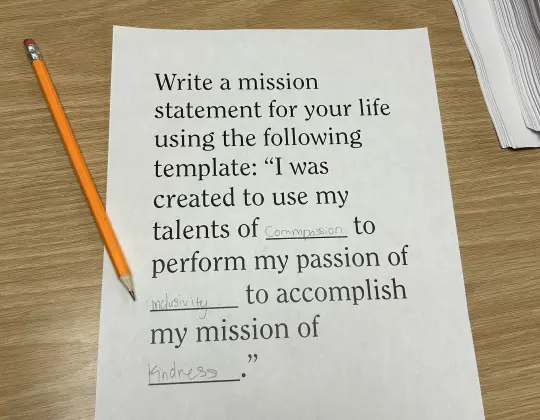 Write a mission
statement for your life
using the following
template: “I was
created to use my
talents of Commpassion to
perform my passion of
inclusivity to accomplish
my mission of
Kindness.”